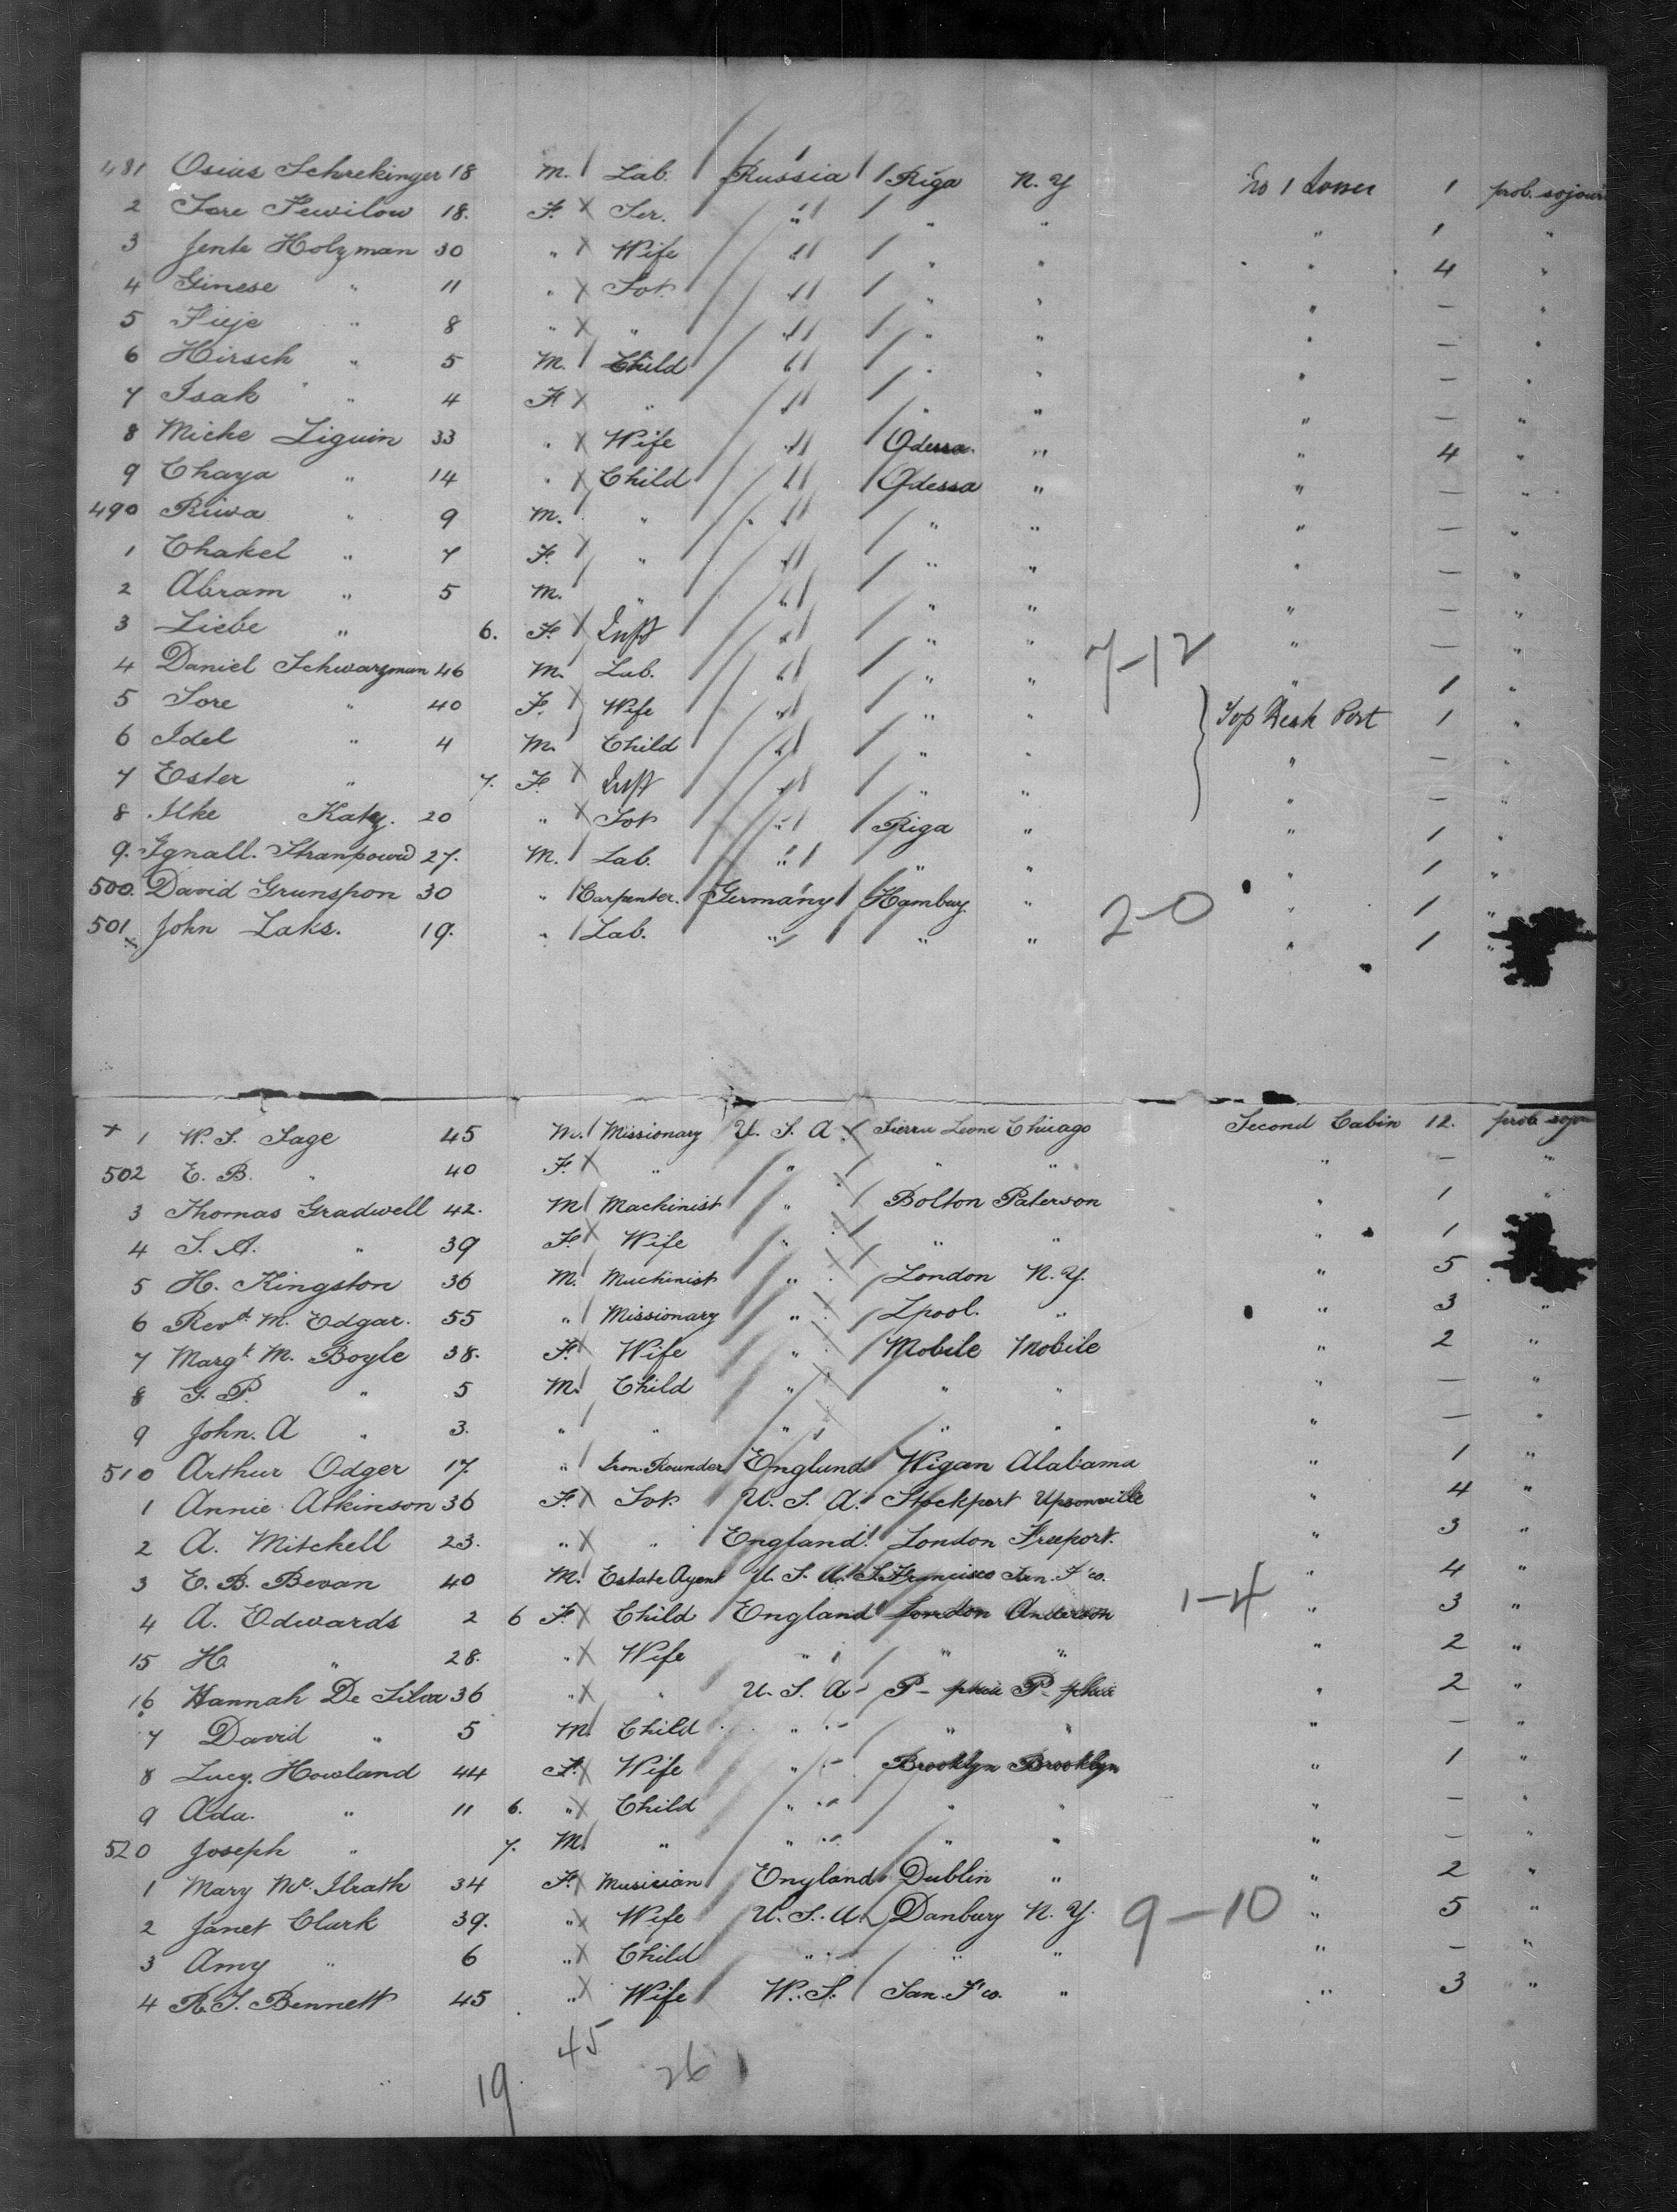 481 Osias Schrekinger 18 M. Lab. Russia Riga N.Y No 1 Lower 1 prob. sojour
2 Sore 18. F. Ser. " " " " 1 "
3 Jente Holzman 30 " Wife " " " " 4 "
4 Ginese " 11 " Sp. " " " " — "
5 Fieje " 8 " " " " " " — "
6 Hirsch " 5 M. Child " " " " — "
7 Isak " 4 F " " " " " — "
8 Miche Liguin 33 " Wife " Odessa " " 4 "
9 Chaya " 14 " Child " Odessa " " — "
490 Riwa " 9 M. " " " " " — "
1 Chakel " 7 F. " " " " " — "
2 Abram " 5 M. " " " " " — "
3 Liebe " 6. F. Inft " " " " — "
4 Daniel Schwarzman 46 M. Lab. " " " 7-12 " 1 "
5 Sore " 40 F. Wife " " " Top Deck Port 1 "
6 Idel " 4 M. Child " " " " — "
7 Ester " 7. F. Inft " " " " — "
8 Ilke Katz. 20 " Sp. " Riga " " 1 "
9. Ignall. 27. M. Lab. " " " " 1 "
500. David Grunspon 30 " Carpenter. Germany Hamburg " 2-0 " 1 "
501 John Laks. 19. " Lab. " " " " 1 "
+ 1 W. S. Sage 45 M. Missionary U. S. A. Sierra Leone Chicago Second Cabin 12. prob sojou
502 E. B. " 40 F. " " " " " — "
3 Thomas Gradwell 42. M Machinist " Bolton Paterson " 1 "
4 S. A. " 39 F. Wife " " " " 1
5 H. Kingston 36 M. Machinist " London N. Y. " 5
6 Revd. M. Edgar. 55 " Missionary " Lpool. " " 3 "
7 Margt M. Boyle 38. F. Wife " Mobile Mobile " 2 "
8 G. P. " 5 M. Child " " " " — "
9 John. A " 3. " " " " " " — "
510 Arthur Odger 17. " Iron Rounder England Wigan Alabama " 1 "
1 Annie Atkinson 36 F. Sp. U. S. A. Stockport Upsonville " 4 "
2 A. Mitchell 23. " " England. London Freeport. " 3 "
3 E. B. Bevan 40 M. Estate Agent U. S. A. S. Francisco San. F'co. " 4 "
4 A. Edwards 2 6 F. Child England London Anderson 1-4 " 3 "
15 H. " 28. " Wife " " " " 2 "
16 Hannah De Silva 36 " " U. S. A P- phia P- phia " 2 "
7 David " 5 M. Child " " " " — "
8 Lucy. Howland 44 F. Wife " Brooklyn Brooklyn " 1 "
9 Ada. " 11 6. " Child " " " " — "
520 Joseph " 7. M. " " " " " — "
1 Mary Mc. Ilrath 34 F. Musician England Dublin " " 2 "
2 Janet Clark 39. " Wife U. S. A. Danbury N. Y. 9-10 " 5 "
3 Amy " 6 " Child " " " " — "
4 R. J. Bennett 45 " Wife W. S. San. F'co. " " 3 "
45
19. 26